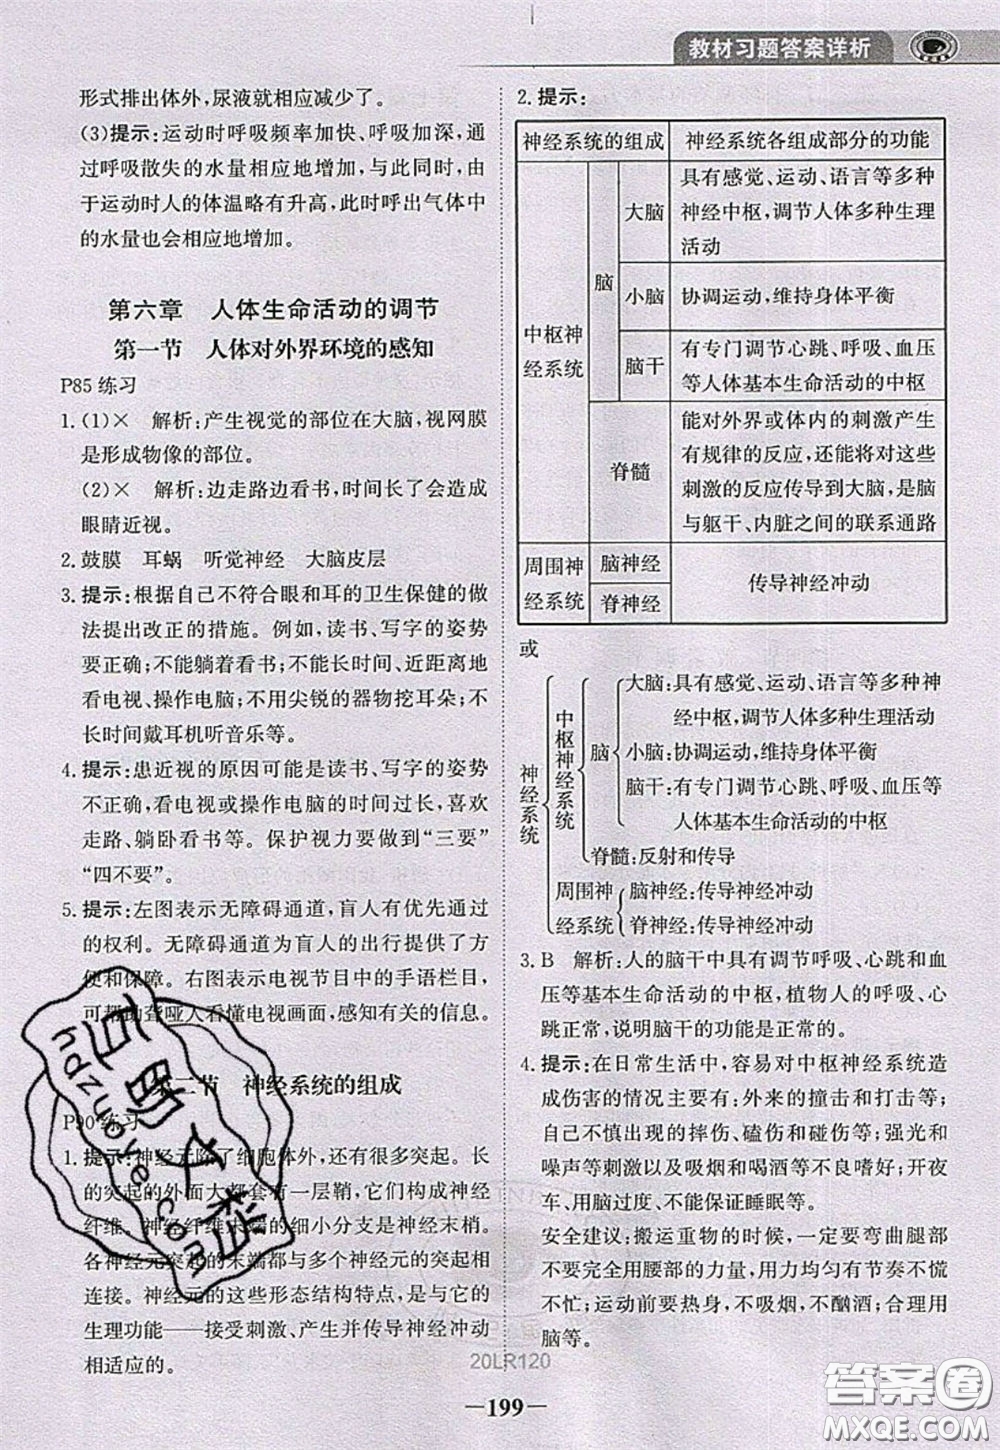 教材习题答案详析
形式排出体外,尿液就相应减少了。
(3)提示:运动时呼吸频率加快、呼吸加深,通
过呼吸散失的水量相应地增加。与此同时,由
于运动时人的体温略有升高,此时呼出气体中
的水量也会相应地增加。
第六章 人体生命活动的调节
第一节 人体对外界环境的感知
P85 练习
1. (1)× 解析:产生视觉的部位在大脑,视网膜
是形成物像的部位。
(2)× 解析:边走路边看书,时间长了会造成
眼睛近视。
2. 鼓膜 耳蜗 听觉神经 大脑皮层
3. 提示:根据自己不符合眼和耳的卫生保健的做
法提出改正的措施。例如,读书、写字的姿势
要正确;不能躺着看书;不能长时间、近距离地
看电视、操作电脑;不用尖锐的器物挖耳朵;不
长时间戴耳机听音乐等。
4. 提示:患近视的原因可能是读书、写字的姿势
不正确,看电视或操作电脑的时间过长,喜欢
走路、躺卧看书等。保护视力要做到“三要”
“四不要”。
5. 提示:左图表示无障碍通道,盲人有优先通过
的权利。无障碍通道为盲人的出行提供了方
便和保障。右图表示电视节目中的手语栏目,
可帮助聋哑人看懂电视画面,感知有关的信息。
第二节 神经系统的组成
P90 练习
1. 提示:神经元除了细胞体外,还有很多突起。长
的突起的外面大都套有一层鞘,它们构成神经
纤维。神经纤维末端的细小分支是神经末梢。
各神经元突起的末端都与多个神经元的突起相
连接。神经元的这些形态结构特点,是与它的
生理功能——接受刺激、产生并传导神经冲动
相适应的。
2. 提示:
神经系统的组成 神经系统各组成部分的功能
中枢神
经系统
脑
大脑
具有感觉、运动、语言等多种
神经中枢,调节人体多种生理
活动
小脑 协调运动,维持身体平衡
脑干
有专门调节心跳、呼吸、血压
等人体基本生命活动的中枢
脊髓
能对外界或体内的刺激产生
有规律的反应,还能对这些
刺激的反应传导到大脑,是脑
与躯干、内脏之间的联系通路
周围神
经系统
脑神经
脊神经
传导神经冲动
或
神经系统
中枢神经系统
脑
大脑:具有感觉、运动、语言等多种神
经中枢,调节人体多种生理活动
小脑:协调运动,维持身体平衡
脑干:有专门调节心跳、呼吸、血压等
人体基本生命活动的中枢
脊髓:反射和传导
周围神
经系统
脑神经:传导神经冲动
脊神经:传导神经冲动
3. B 解析:人的脑干中具有调节呼吸、心跳和血
压等基本生命活动的中枢,植物人的呼吸、心
心跳正常,说明脑干的功能是正常的。
4. 提示:在日常生活中,容易对中枢神经系统造
成伤害的情况主要有:外来的撞击和打击等;
自己不慎出现的摔伤、磕伤和碰伤等;强光和
噪声等刺激以及吸烟和喝酒等不良习惯;开夜
车、用脑过度、不能保证睡眠等。
安全建议:搬运重物的时候,一定要弯曲腿部
不要完全使用腰部的力量,用力均匀有节奏不慌
不忙;运动前要热身,不吸烟、不酗酒;合理用
脑等。
20LR120
—199—
答案圈
MXQE.COM